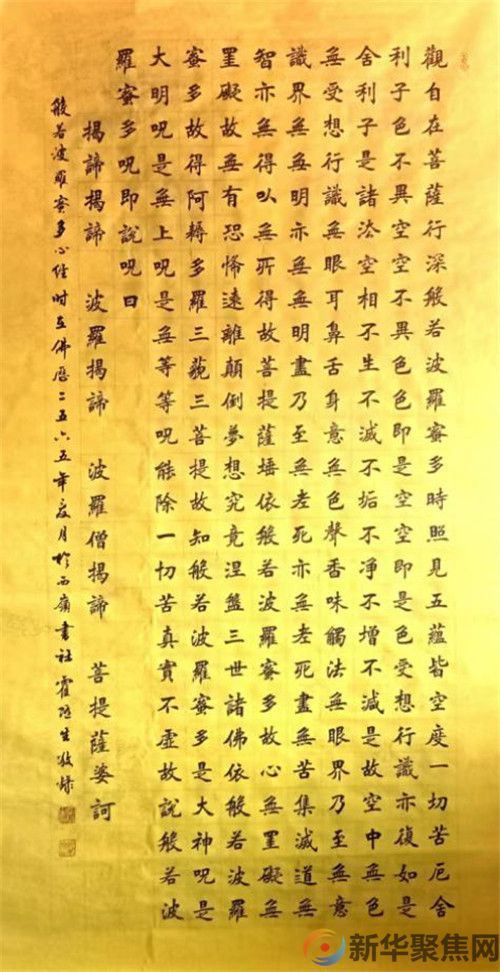 觀自在菩薩行深般若波羅蜜多時照見五蘊皆空度一切苦厄舍
利子色不異空空不異色色即是空空即是色受想行識亦復如是
舍利子是諸法空相不生不滅不垢不净不增不減是故空中無色
無受想行識無眼耳鼻舌身意無色聲香味觸法無眼界乃至無意
識界無無明亦無無明盡乃至無老死亦無老死盡無苦集滅道無
智亦無得以無所得故菩提薩埵依般若波羅蜜多故心無罣礙無
罣礙故無有恐怖遠離顛倒夢想究竟涅盤三世諸佛依般若波羅
蜜多故得阿耨多羅三藐三菩提故知般若波羅蜜多是大神呪是
大明呪是無上呪是無等等呪能除一切苦真實不虛故說般若波
羅蜜多呪即說呪曰
揭諦揭諦 波羅揭諦 波羅僧揭諦 菩提薩婆訶
般若波羅蜜多心經时在佛歷二五六五年月於西嶺書社霍生敬
新华聚焦网